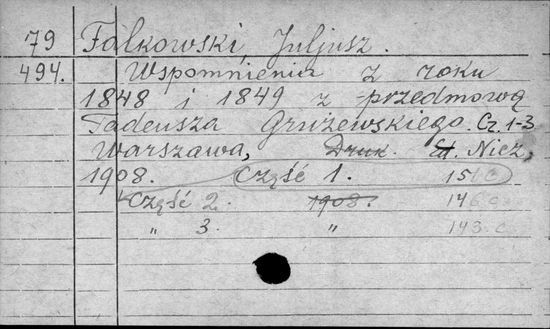 79 Falkowski Juljusz.
494. Wspomnienia z roku
1848 i 1849 z przedmową
Tadeusza Grużewskiego. Cz. 1-3
Warszawa, Druk. Niez,
1908. Część 1. 151
Część 2. 1908. 146
" 3. " 143. c